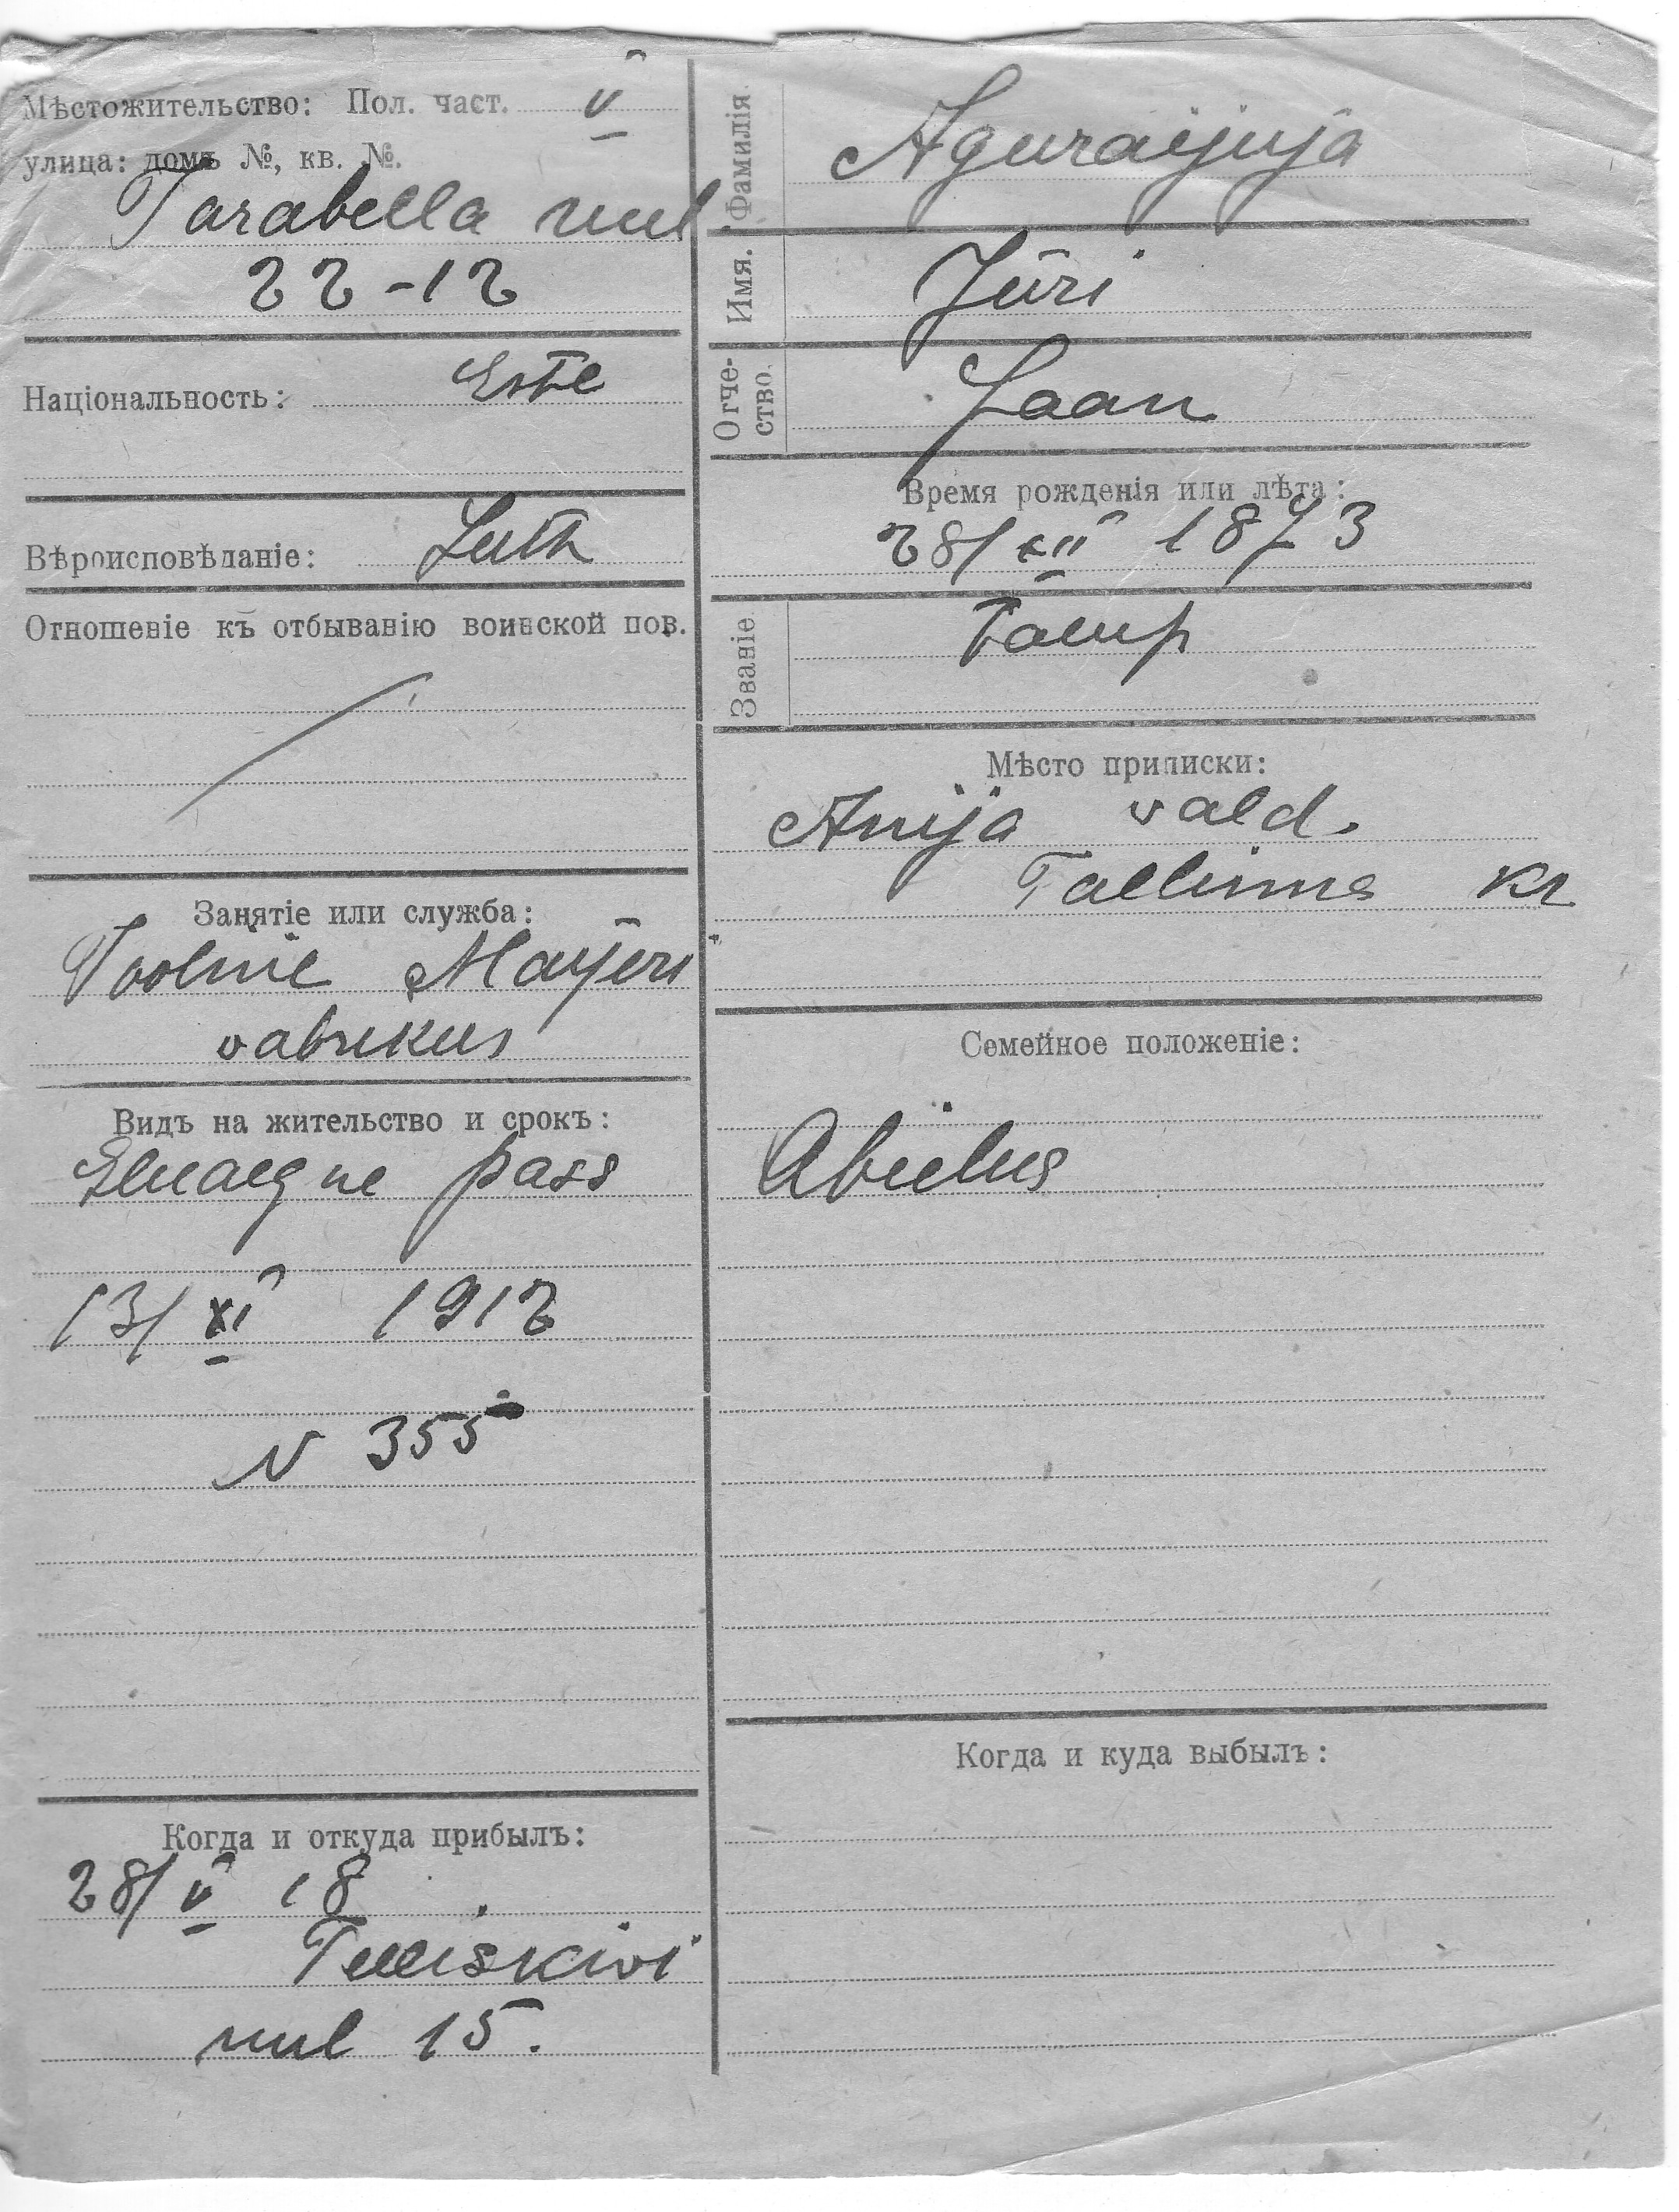 Мѣстожительство: Пол. част. V
улица: домъ №, кв. №.
Parabella uul
22-12
Національность:
Вѣроисповѣданіе: Luth
Отношеніе къ отбыванію воинской пов.
Занятіе или служба:
Mayeri
vabrikus
Видъ на жительство и срокъ:
Eluaegne pass
13/XI 1912
N 355
Когда и откуда прибылъ:
28/V 18
Telliskivi
uul 15.
Фамилія.
Aguraijuja
Имя.
Jüri
Отче-
ство.
Jaan
Время рожденія или лѣта:
28/XII 1873
Званіе
Talup
Мѣсто приписки:
Anija vald.
Tallinna kr
Семейное положеніе:
Abielus
Когда и куда выбылъ: